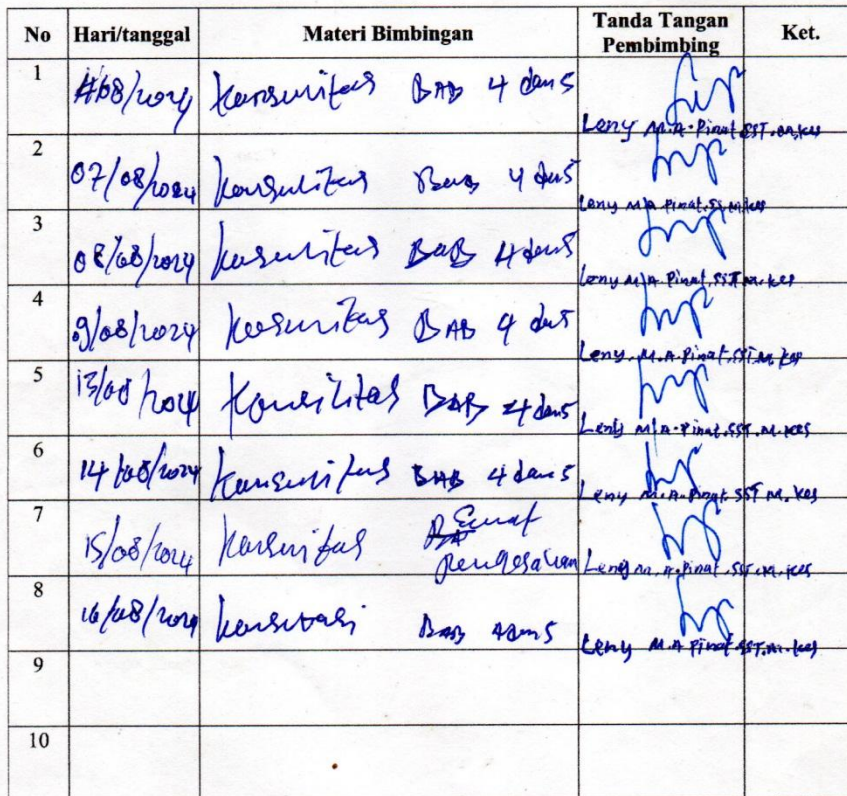 No Hari/tanggal Materi Bimbingan Tanda Tangan Pembimbing Ket.
1 /08/2024 BAB 4 dan 5
Leny M.A. Pinat.SST.M.kes
2 07/08/2024 Konsulitas Bab 4 dan 5
Leny M.A. Pinat.SS.M.kes
3 08/08/2024 BaB 4 dan 5
Leny M.A. Pinat.SST.M.kes
4 9/08/2024 BAB 4 dan 5
Leny. M.A. Pinat.SST.M.kes
5 13/08/2024 BAB 4 dan 5
Leny M.A. Pinat.SST.M.kes
6 14/08/2024 BAB 4 dan 5
Leny M.A. Pinat.SST M.kes
7 15/08/2024 Surat
pengesahan Leny M.A. Pinat.SST.M.kes
8 16/08/2024 BAB 4 dan 5
Leny M.A Pinat.SST.M.kes
9
10